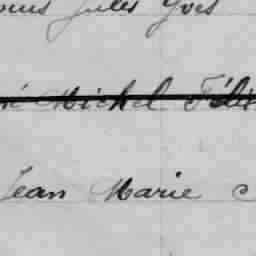 Jules Yves
Michel Féli
Jean Marie